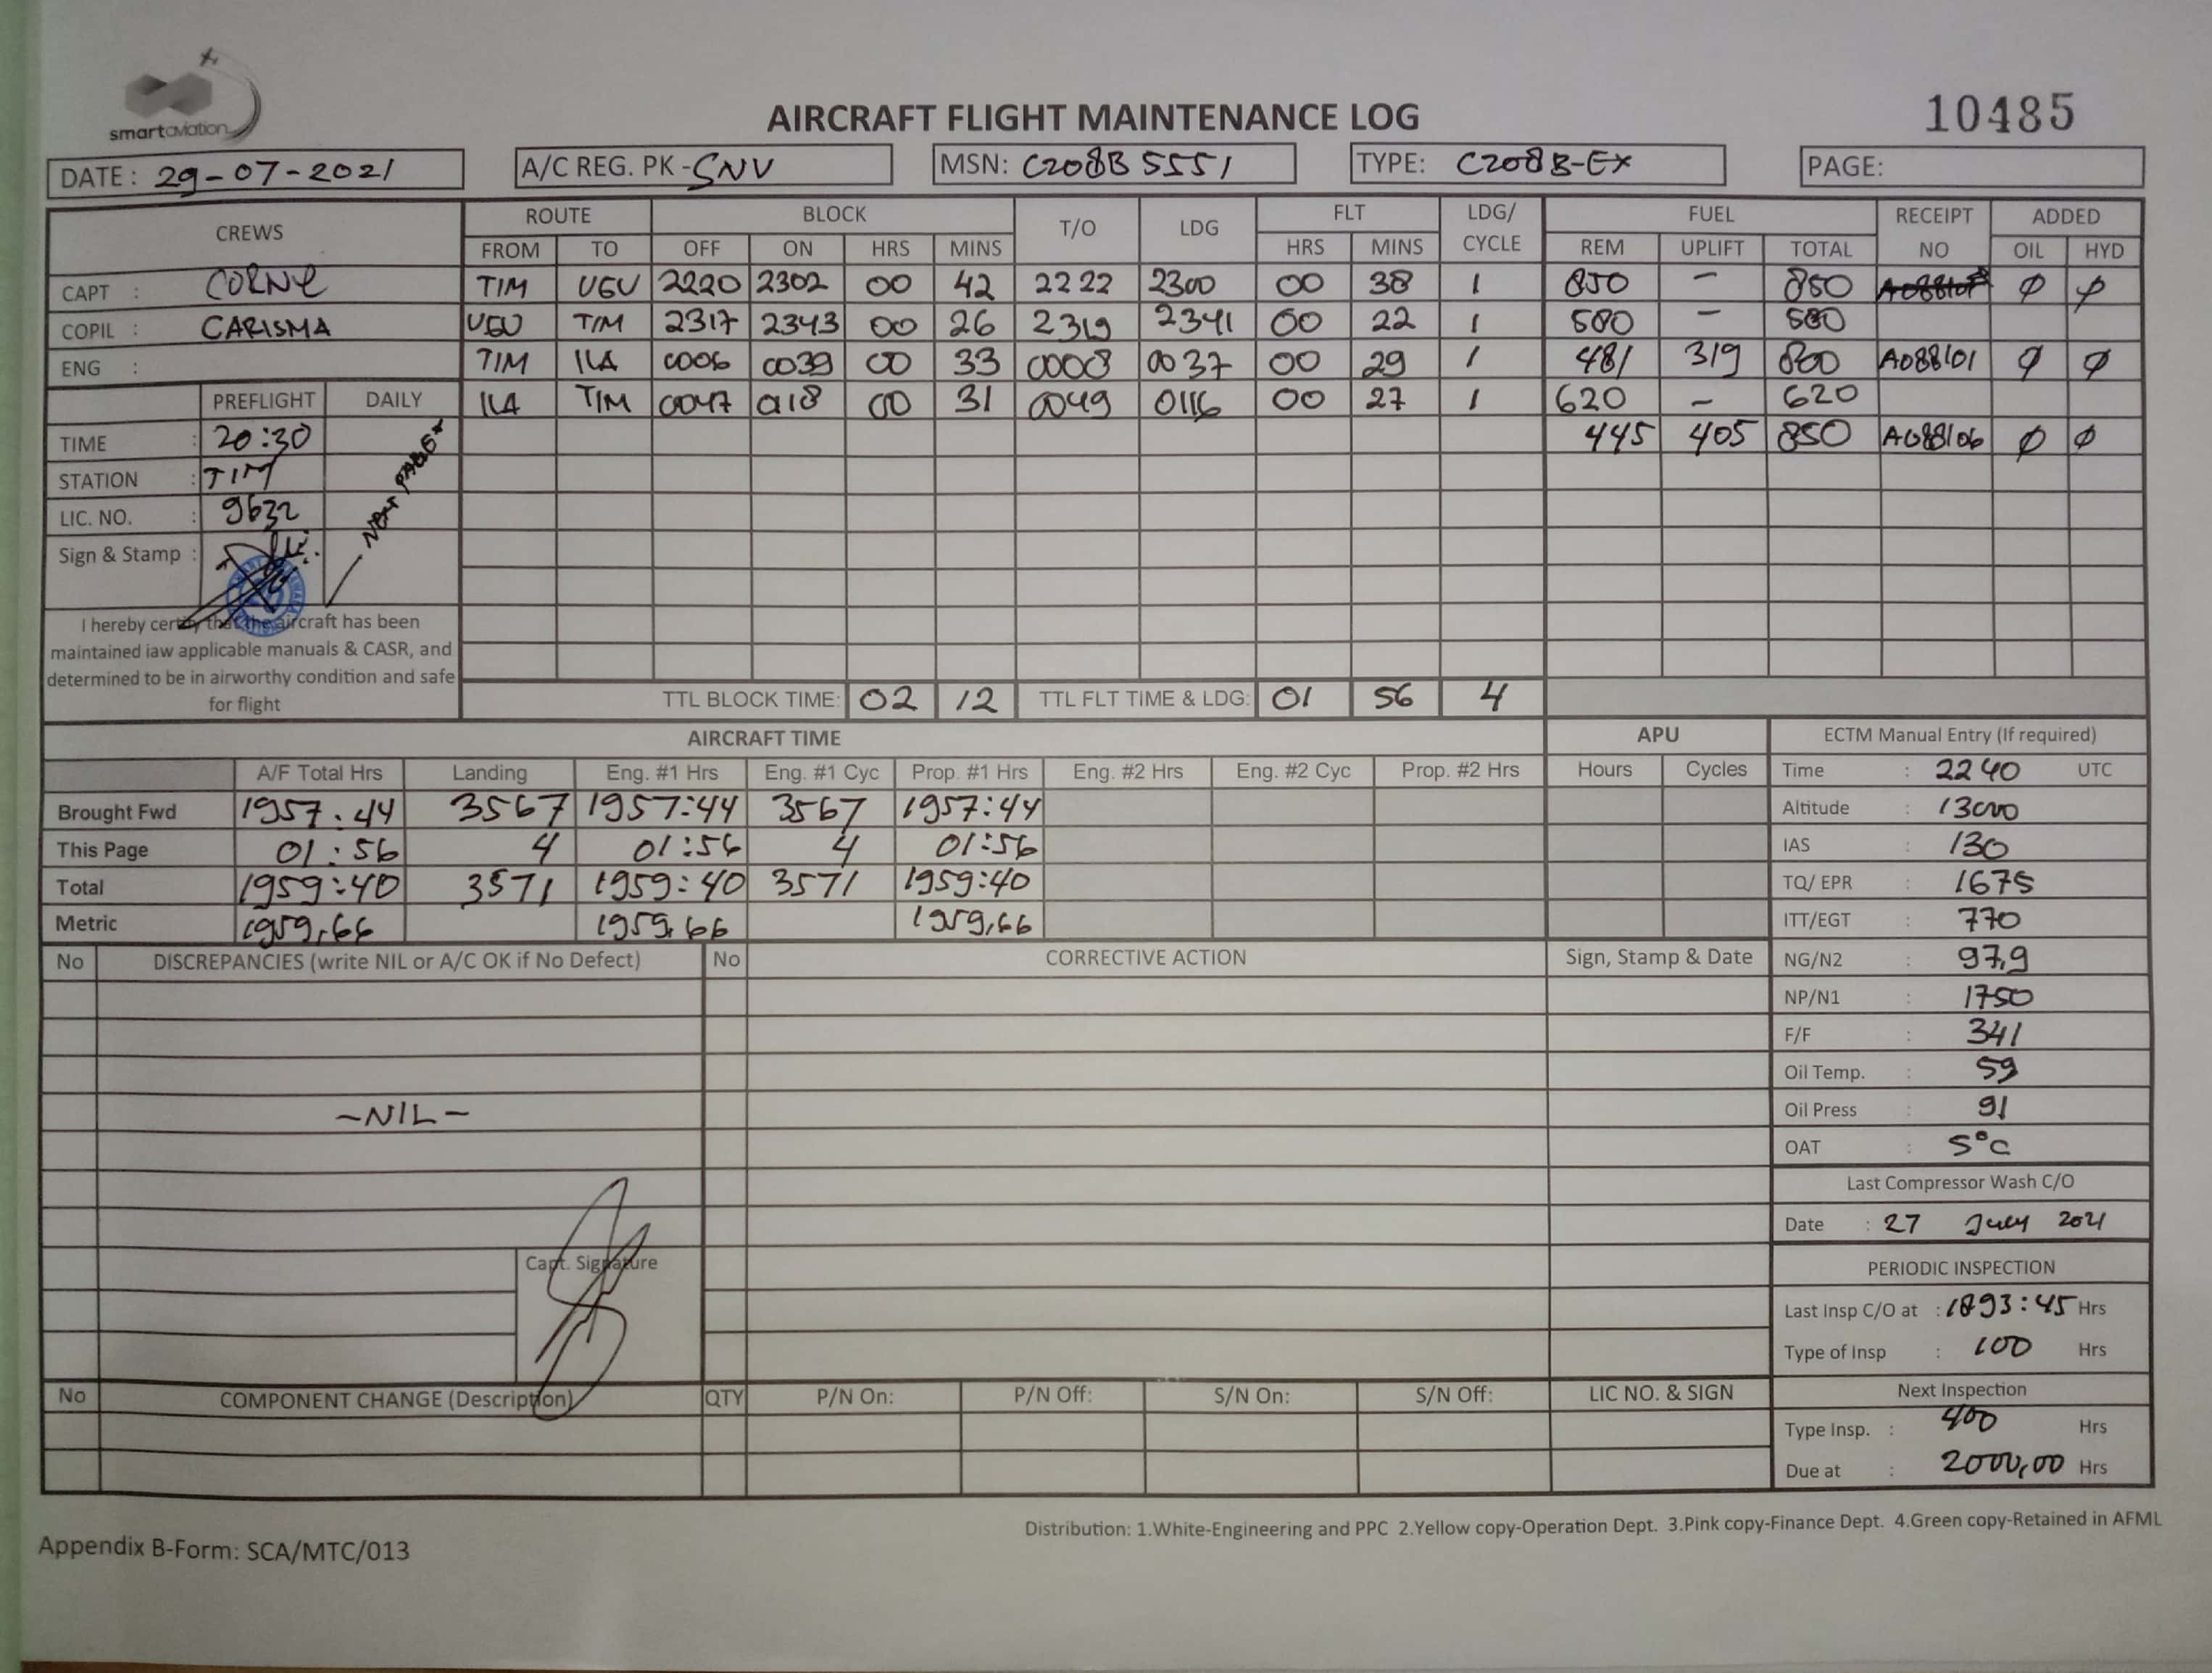 smartaviation
AIRCRAFT FLIGHT MAINTENANCE LOG
10485
DATE : 29-07-2021 A/C REG. PK - SNV MSN: C208B 5551 TYPE: C208B-EX PAGE:
CREWS ROUTE BLOCK T/O LDG FLT LDG/ CYCLE FUEL RECEIPT NO ADDED
FROM TO OFF ON HRS MINS HRS MINS REM UPLIFT TOTAL OIL HYD
CAPT : CORNE TIM UGU 2220 2302 00 42 2222 2300 00 38 1 850 - 850 Ø Ø
COPIL : CARISMA UGU TIM 2317 2343 00 26 2319 2341 00 22 1 580 - 580
ENG : TIM ILA 0006 0039 00 33 0008 0037 00 29 1 481 319 800 A088101 Ø Ø
PREFLIGHT DAILY ILA TIM 0047 0118 00 31 0049 0116 00 27 1 620 - 620
TIME : 20:30 445 405 850 A088106 Ø Ø
STATION : TIM
LIC. NO. : 9632
NEXT PAGE
Sign & Stamp :
I hereby certify that the aircraft has been
maintained iaw applicable manuals & CASR, and
determined to be in airworthy condition and safe
for flight
TTL BLOCK TIME: 02 12 TTL FLT TIME & LDG: 01 56 4
AIRCRAFT TIME APU ECTM Manual Entry (If required)
A/F Total Hrs Landing Eng. #1 Hrs Eng. #1 Cyc Prop. #1 Hrs Eng. #2 Hrs Eng. #2 Cyc Prop. #2 Hrs Hours Cycles Time : 2240 UTC
Brought Fwd 1957:44 3567 1957:44 3567 1957:44 Altitude : 13000
This Page 01:56 4 01:56 4 01:56 IAS : 130
Total 1959:40 3571 1959:40 3571 1959:40 TQ/ EPR : 1675
Metric 1959,66 1959,66 1959,66 ITT/EGT : 770
No DISCREPANCIES (write NIL or A/C OK if No Defect) No CORRECTIVE ACTION Sign, Stamp & Date NG/N2 : 97,9
NP/N1 : 1750
F/F : 341
Oil Temp. : 59
-NIL- Oil Press : 91
OAT : 5°C
Last Compressor Wash C/O
Date : 27 July 2021
Capt. Signature
PERIODIC INSPECTION
Last Insp C/O at : 1893:45 Hrs
Type of Insp : 100 Hrs
No COMPONENT CHANGE (Description) QTY P/N On: P/N Off: S/N On: S/N Off: LIC NO. & SIGN Next Inspection
Type Insp. : 400 Hrs
Due at : 2000,00 Hrs
Distribution: 1.White-Engineering and PPC 2.Yellow copy-Operation Dept. 3.Pink copy-Finance Dept. 4.Green copy-Retained in AFML
Appendix B-Form: SCA/MTC/013